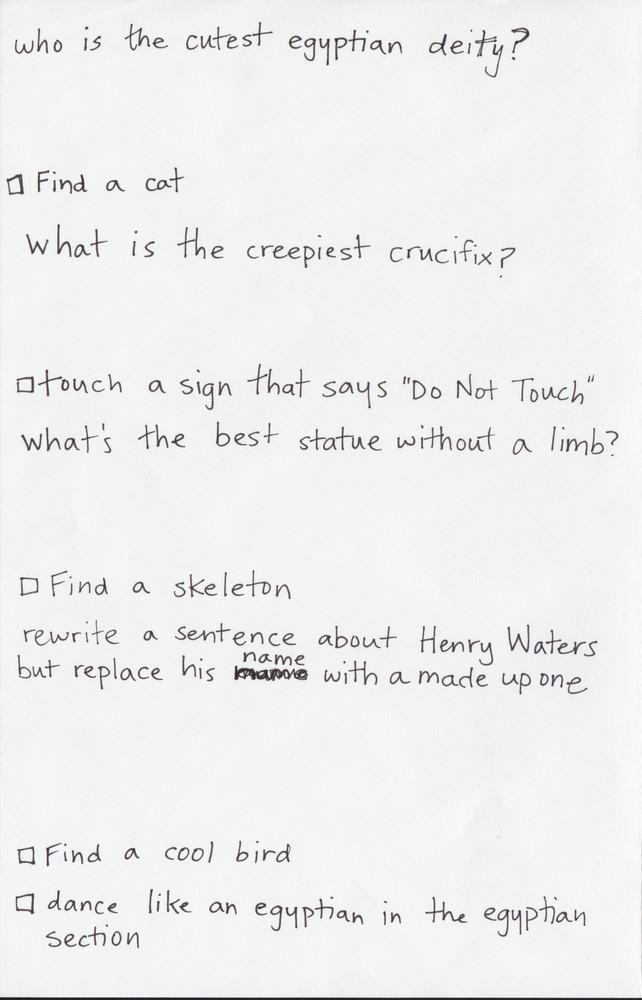 who is the cutest egyptian deity?
☐ Find a cat
what is the creepiest crucifix?
☐ touch a sign that says "Do Not Touch"
what's the best statue without a limb?
☐ Find a skeleton
rewrite a sentence about Henry Waters
but replace his name with a made up one
☐ Find a cool bird
☐ dance like an egyptian in the egyptian
section